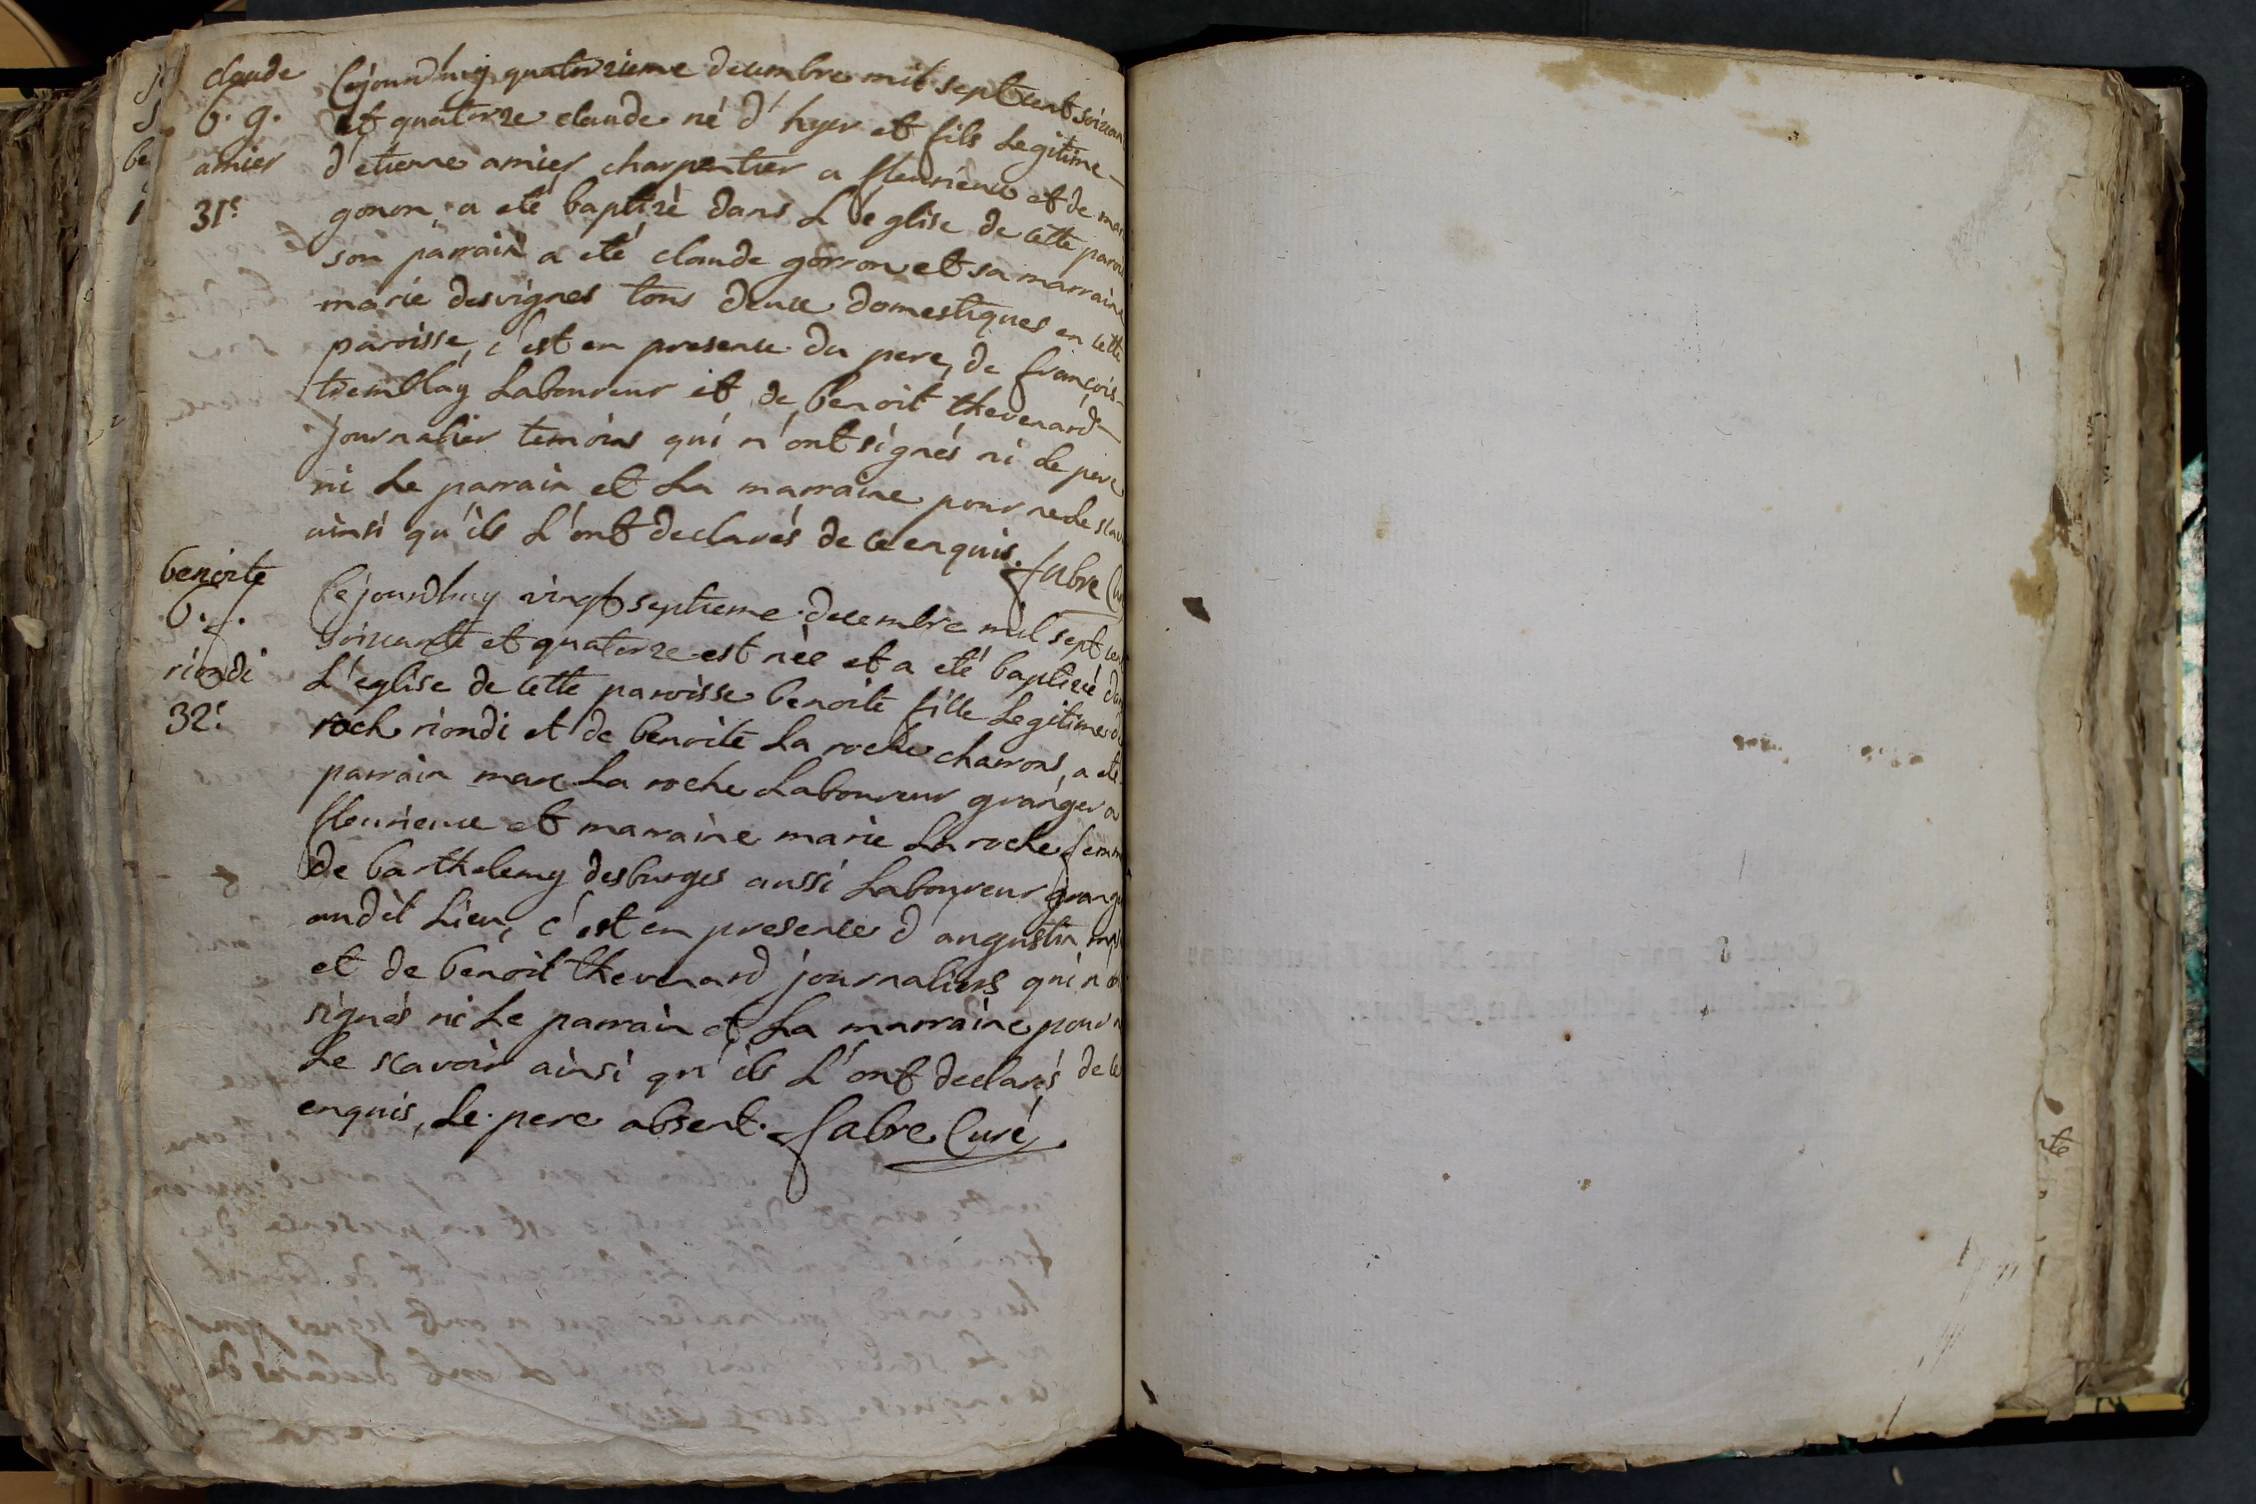 claude
b. g.
amier
31e
Cejourdhuy quatorzieme decembre mil sept cent soixan
et quatorze claude né d'hyer et fils Legitime
d'etienne amier charpentier a fleurieux et de mar
gonon, a eté baptizé dans L'eglise de cette parois
son parrain a eté claude gonon et sa marraine
marie desvignes tous deux domestiques en cette
paroisse, c'est en presence du pere, de françois
tremblay Laboureur et de benoit thevenard
journalier temoins qui n'ont signés ni le pere
ni Le parrain et La marraine pour ne le scav
ainsi qu'ils L'ont declarés de ce enquis. fabre Curé
benoite
b. f.
riondi
32e
Cejourdhuy vingt septieme decembre mil sept cent
soixante et quatorze est née et a eté baptizé dans
L'eglise de cette paroisse benoite fille Legitime de
roch riondi et de benoite La roche charrons, a eté
parrain marc La roche Laboureur granger a
fleurieux et marraine marie La roche femm
de barthelemy desburges aussi Laboureur grange
audit Lieu, c'est en presence d'augustin
et de benoit thevenard journaliers qui n'on
signés ni Le parrain et La marraine pour n
Le scavoir ainsi qu'ils L'ont declarés de ce
enquis, Le pere absent. fabre Curé